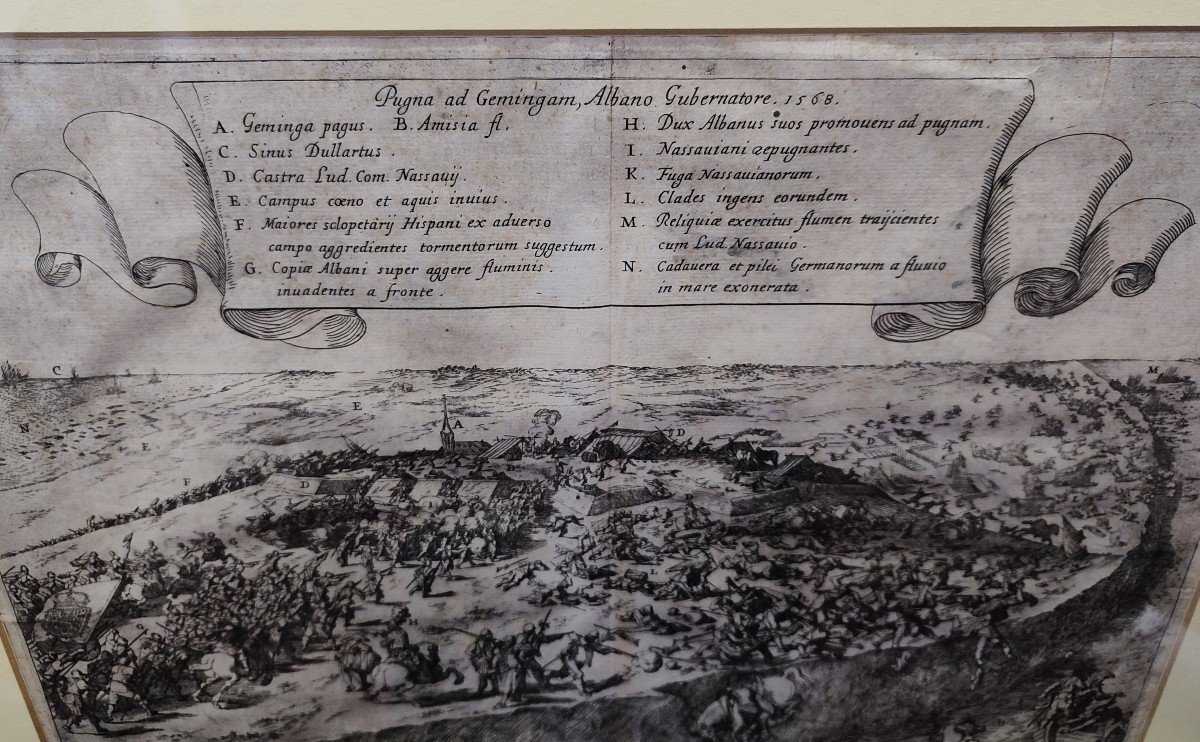 Pugna ad Gemingam, Albano Gubernatore. 1568.
A. Geminga pagus. B. Amisia fl.
C. Sinus Dullartus.
D. Castra Lud. Com. Nassauij.
E. Campus cœno et aquis inuius.
F. Maiores sclopetarij Hispani ex aduerso
campo aggredientes tormentorum suggestum.
G. Copiæ Albani super aggere fluminis
inuadentes a fronte.
H. Dux Albanus suos promouens ad pugnam.
I. Nassauiani repugnantes.
K. Fuga Nassauianorum.
L. Clades ingens eorundem.
M. Reliquiæ exercitus flumen traijcientes
cum Lud. Nassauio.
N. Cadauera et pilei Germanorum a fluuio
in mare exonerata.
C
M
K
E
A
D
D
N
E
F
D
D
G
H